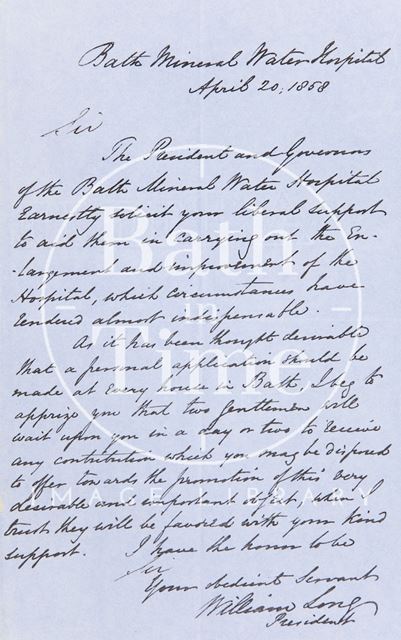 Bath Mineral Water Hospital
April 20, 1858
Sir
The President and Governors
of the Bath Mineral Water Hospital
Earnestly solicit your liberal support
to aid them in carrying out the En-
-largement and improvement of the
Hospital, which circumstances have
rendered almost indispensable.
As it has been thought desirable
that a personal application should be
made at Every house in Bath, I beg to
apprize you that two Gentlemen will
wait upon you in a day or two to receive
any contribution which you may be disposed
to offer towards the promotion of this very
desirable and important object, which I
trust they will be favored with your kind
support.
I have the honor to be
Sir
Your obedient Servant
William Long
President
Bath
in
Time
IMAGE LIBRARY